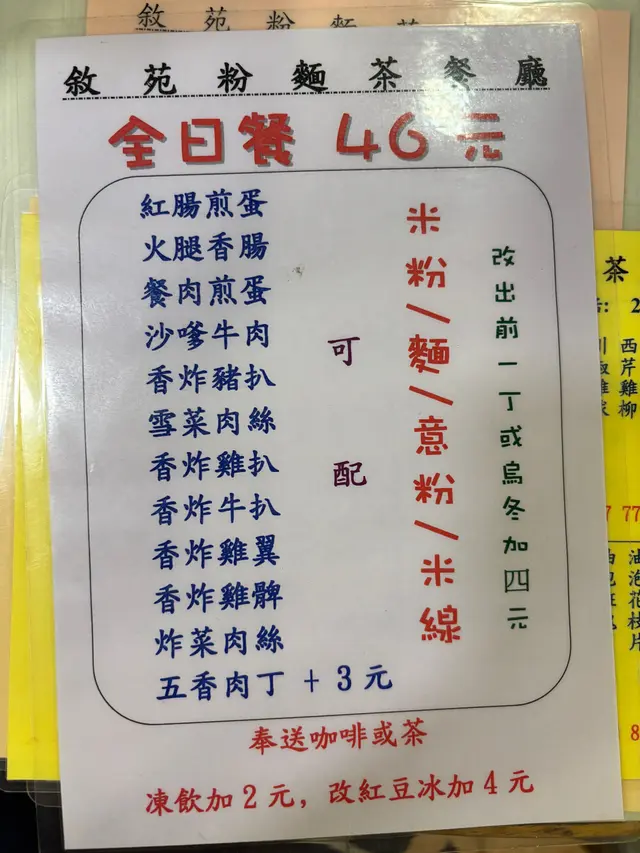 敘苑粉麵茶餐廳
全日餐 46元
紅腸煎蛋
火腿香腸
餐肉煎蛋
沙嗲牛肉
香炸豬扒
雪菜肉絲
香炸雞扒
香炸牛扒
香炸雞翼
香炸雞髀
炸菜肉絲
五香肉丁 + 3 元
可配
米粉/麵/意粉/米線
改出前一丁或烏冬加四元
奉送咖啡或茶
凍飲加 2 元, 改紅豆冰加 4 元
茶
西芹雞柳
77
油泡花枝片
8